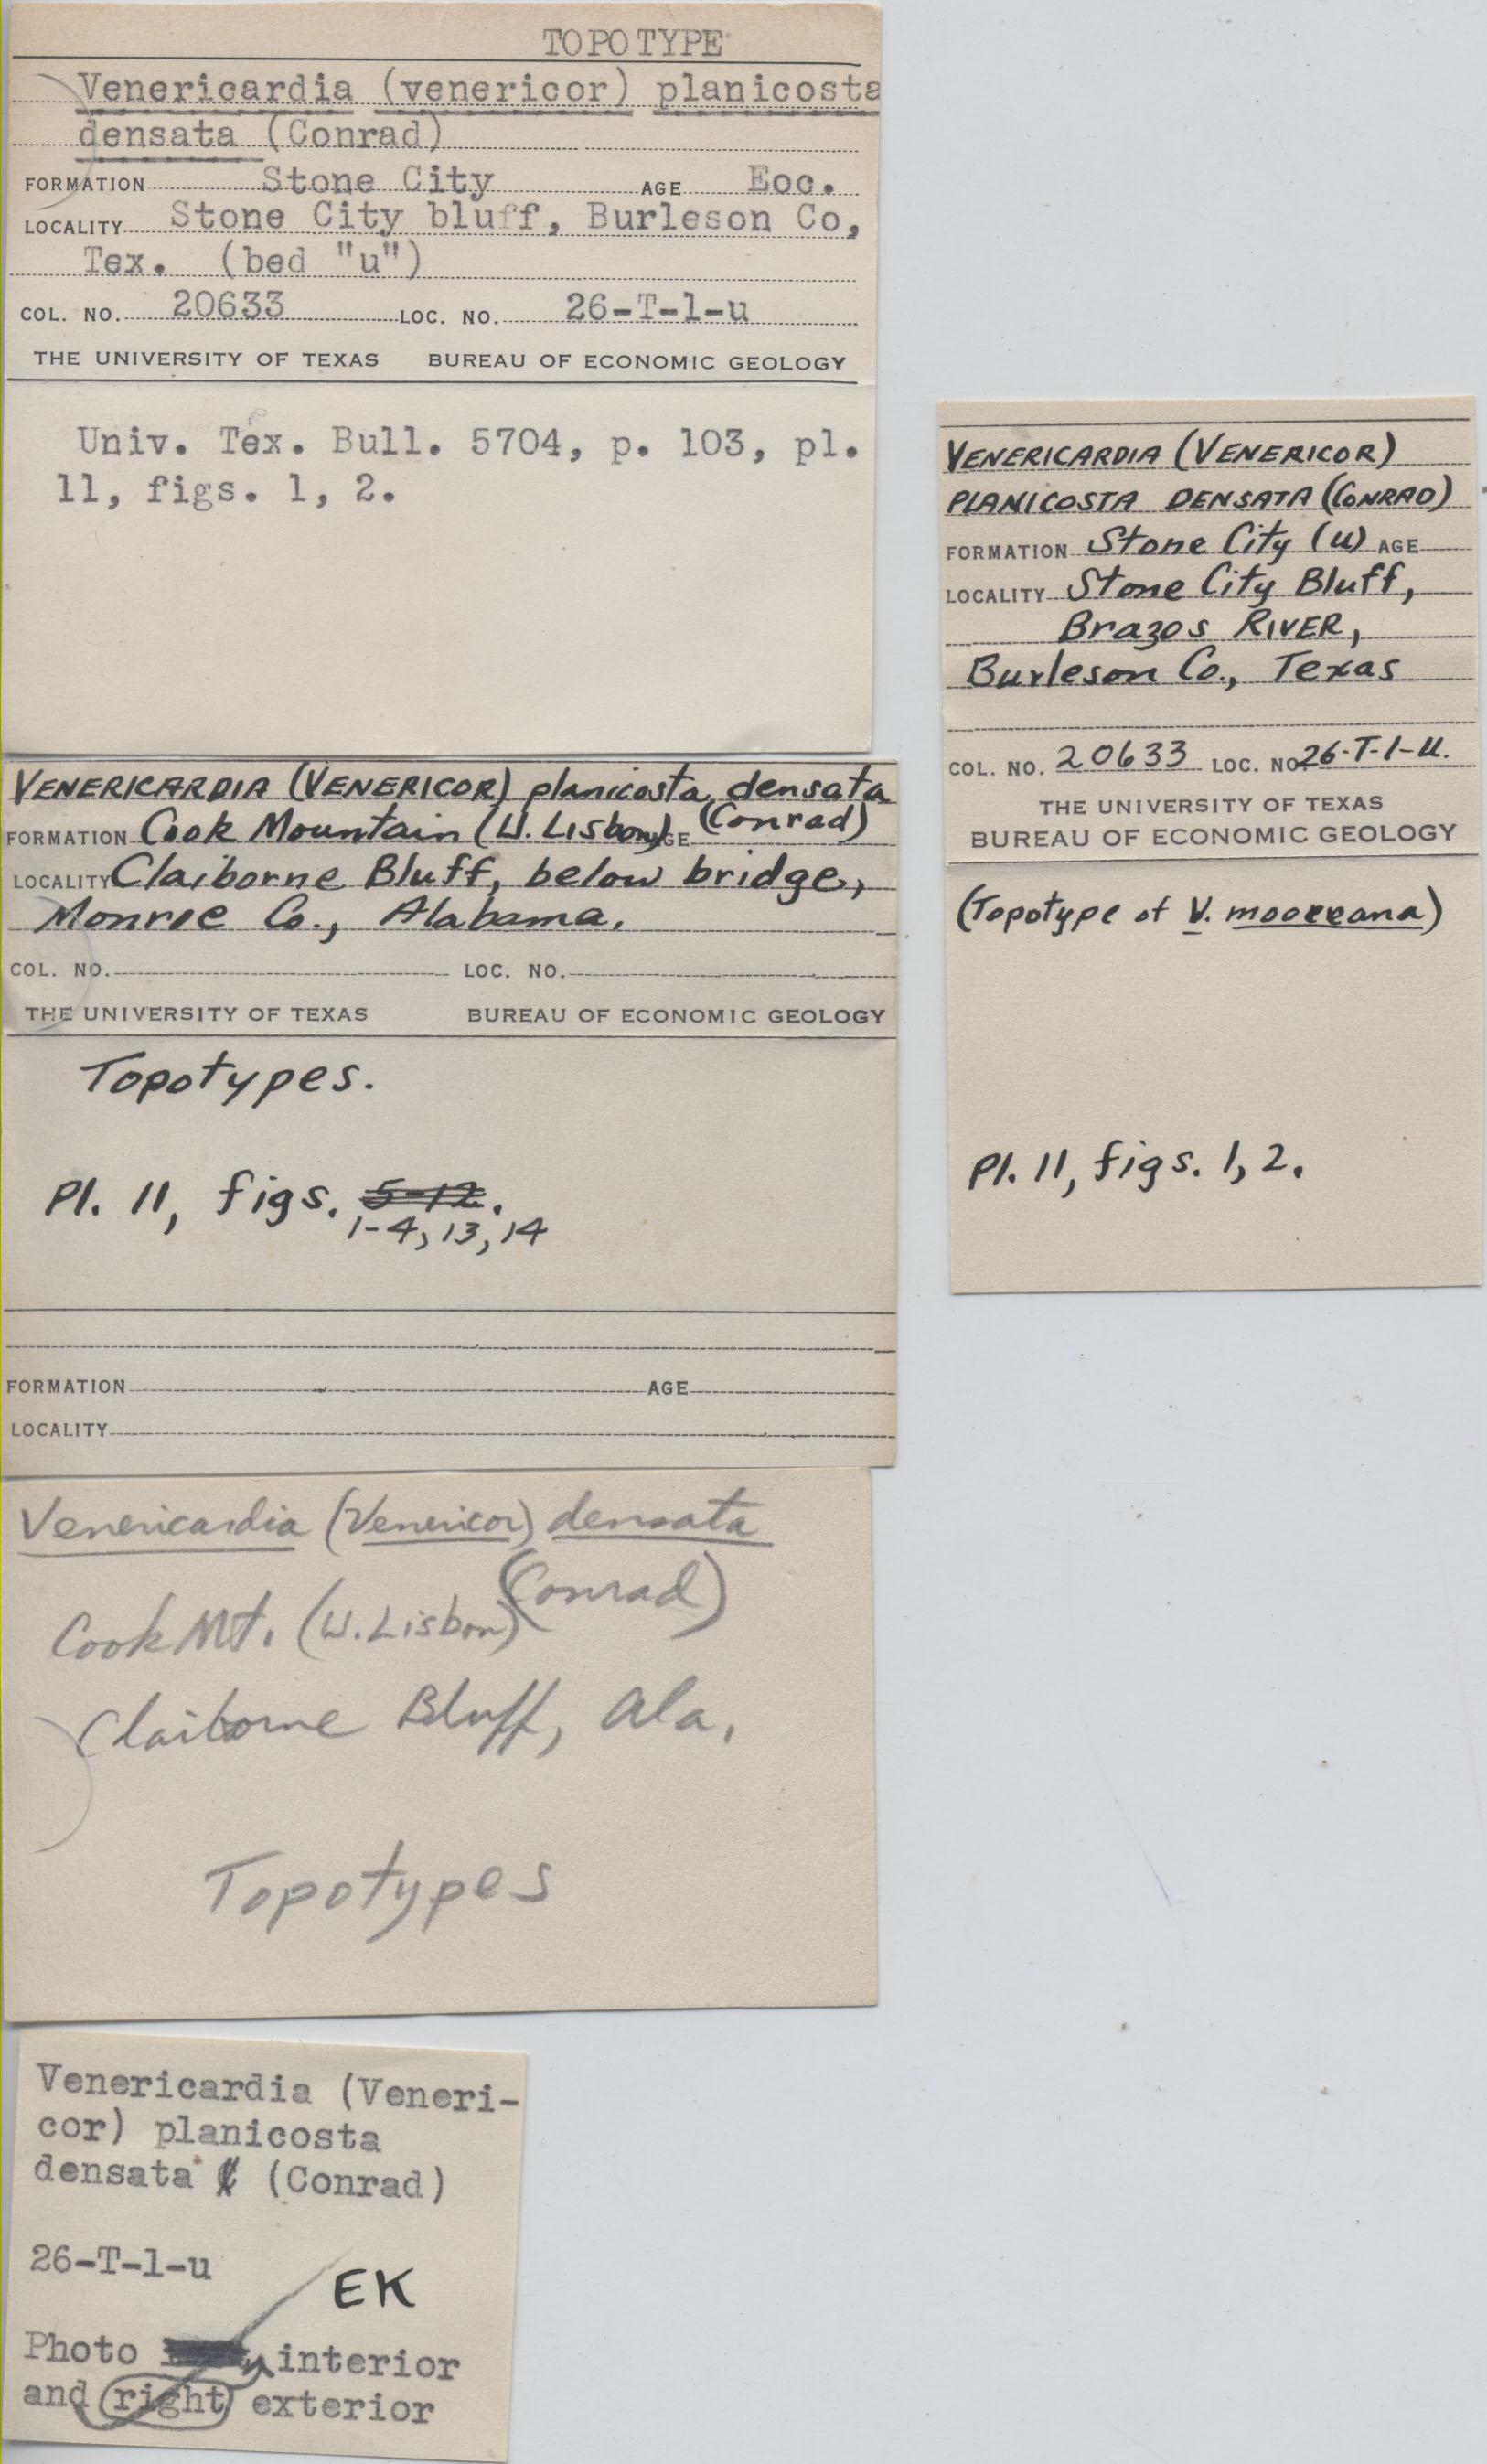 TOPOTYPE
Venericardia (venericor) planicosta
densata (Conrad)
FORMATION Stone City AGE Eoc.
LOCALITY Stone City bluff, Burleson Co,
Tex. (bed "u")
COL. NO. 20633 LOC. NO. 26-T-1-u
THE UNIVERSITY OF TEXAS BUREAU OF ECONOMIC GEOLOGY
Univ. Tex. Bull. 5704, p. 103, pl.
11, figs. 1, 2.
VENERICARDIA (VENERICOR) planicosta densata
FORMATION Cook Mountain (U. Lisbon) AGE (Conrad)
LOCALITY Claiborne Bluff, below bridge,
Monroe Co., Alabama.
COL. NO. LOC. NO.
THE UNIVERSITY OF TEXAS BUREAU OF ECONOMIC GEOLOGY
Topotypes.
Pl. 11, figs. 5-12.
1-4, 13, 14
FORMATION AGE
LOCALITY
Venericardia (Venericor) densata
(Conrad)
Cook Mt. (U. Lisbon)
Claiborne Bluff, Ala.
Topotypes
Venericardia (Veneri-
cor) planicosta
densata (Conrad)
26-T-1-u
EK
Photo interior
and right exterior
VENERICARDIA (VENERICOR)
PLANICOSTA DENSATA (CONRAD)
FORMATION Stone City (u) AGE
LOCALITY Stone City Bluff,
Brazos RIVER,
Burleson Co., Texas
COL. NO. 20633 LOC. NO. 26-T-1-u.
THE UNIVERSITY OF TEXAS
BUREAU OF ECONOMIC GEOLOGY
(Topotype of V. mooreana)
Pl. 11, figs. 1, 2.